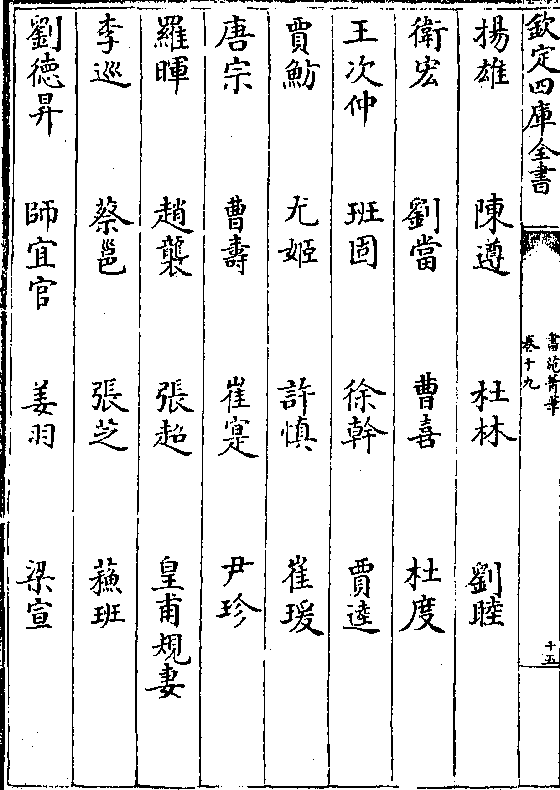 欽定四庫全書
書苑菁華
卷十九
十五
揚雄 陳遵 杜林 劉睦
衛宏 劉當 曹喜 杜度
王次仲 班固 徐幹 賈逵
賈魴 尤姬 許慎 崔瑗
唐宗 曹壽 崔寔 尹珍
羅暉 趙襲 張超 皇甫規妻
李巡 蔡邕 張芝 蘓班
劉德昇 師宜官 姜羽 梁宣